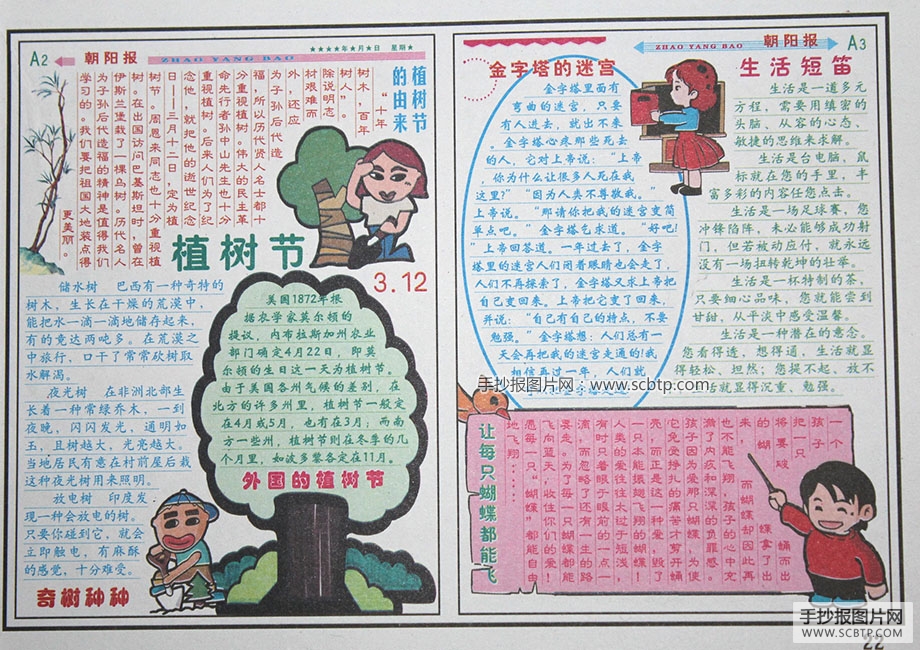 A2
朝阳报
ZHAO YANG BAO
★★★★年★月★日 星期★
植树节
的由来
“十年
树木，百年
树人”。
除说明志
材艰难而
外，还应
为子孙后代造
福，所以历代贤人名士都十
分重视植树。伟大的民主革
命先行者孙中山先生也十分
重视植树。后来人们为了纪
念他，就把他的逝世纪念
日——三月十二日，定为植
树节。周恩来同志也十分重视植
树。在出国访问巴基斯坦时，曾在
伊斯兰堡栽了一棵乌树。历代名人
为子孙后代造福的精神是值得我们
学习的。我们要把祖国大地装点得
更美丽。
植树节
3.12
储水树 巴西有一种奇特的
树木，生长在干燥的荒漠中，
能把水一滴一滴地储存起来，
有的竟达两吨多。在荒漠之
中旅行，口干了常常砍树取
水解渴。
夜光树 在非洲北部生
长着一种常绿乔木，一到
夜晚，闪闪发光，通明如
玉，且树越大，光亮越大。
当地居民有意在村前屋后栽
这种夜光树用来照明。
放电树 印度发
现一种会放电的树。
只要你碰到它，就会
立即触电，有麻酥
的感觉，十分难受。
奇树种种
美国1872年根
据农学家莫尔顿的
提议，内布拉斯加州农业
部门确定4月22日，即莫
尔顿的生日这一天为植树节。
由于美国各州气候的差别，在
北方的许多州里，植树节一般定
在4月或5月，也有在3月；而南
方一些州，植树节则在冬季的几
个月里，如波多黎各定在11月。
外国的植树节
ZHAO YANG BAO
朝阳报
A3
金字塔的迷宫
金字塔里面有
弯曲的迷宫，只要
有人进去，就出不来
。金字塔心疼那些死去
的人，它对上帝说：“上帝
，你为什么让很多人死在我
这里？”“因为人类不尊敬我。”
上帝说。“那请你把我的迷宫变简
单点吧。”金字塔乞求道。“好吧！
”上帝回答道。一年过去了，金字
塔里的迷宫人们闭着眼睛也会走了，
人们不再探索了，金字塔又求上帝把
自己变回来。上帝把它变了回来，
并说：“自己有自己的特点，不要
勉强。”金字塔想：人们总有一
天会再把我的迷宫走通的！我
相信再过一年，人们就
生活短笛
生活是一道多元
方程，需要用缜密的
头脑、从容的心态、
敏捷的思维来求解。
生活是台电脑，鼠
标就在您的手里，丰
富多彩的内容任您点击。
生活是一场足球赛，您
冲锋陷阵，未必能够成功射
门，但若被动应付，就永远
没有一场扭转乾坤的壮举。
生活是一杯特制的茶，
只要细心品味，您就能尝到
甘甜，从平淡中感受温馨。
生活是一种潜在的意念。
您看得透，想得通，生活就显
得轻松、坦然；您提不起、放不
生活就显得沉重、勉强。
手抄报图片网：www.scbtp.com
让每只蝴蝶都能飞
一个
孩子
把一只
将要破 蛹而出
的蝴 蝶拿了出
来 而蝴蝶却因此再
也不能飞翔，孩子的心中充
满了内疚和深深的负罪感。
孩子因为爱那只蝴蝶，为使
它免受挣扎的痛苦才剪开蛹
壳，而正是这一种爱，毁了
一只本能振翅飞翔的蝴蝶！
人类的爱往往太过于短浅，
有时只着眼于眼前的一点一
滴，而忽略了还有一生的路
要走。为了每一只蝴蝶都能
飞向蓝天，收住你们的爱！
愿每一只“蝴蝶”都能自由
地飞翔……
手抄报图片网
WWW.SCBTP.COM
22